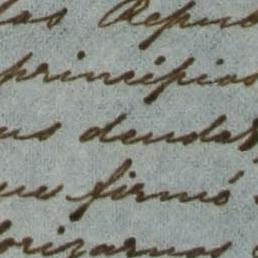 las Repub
principios
us deudas
ue firmó
orizarnos